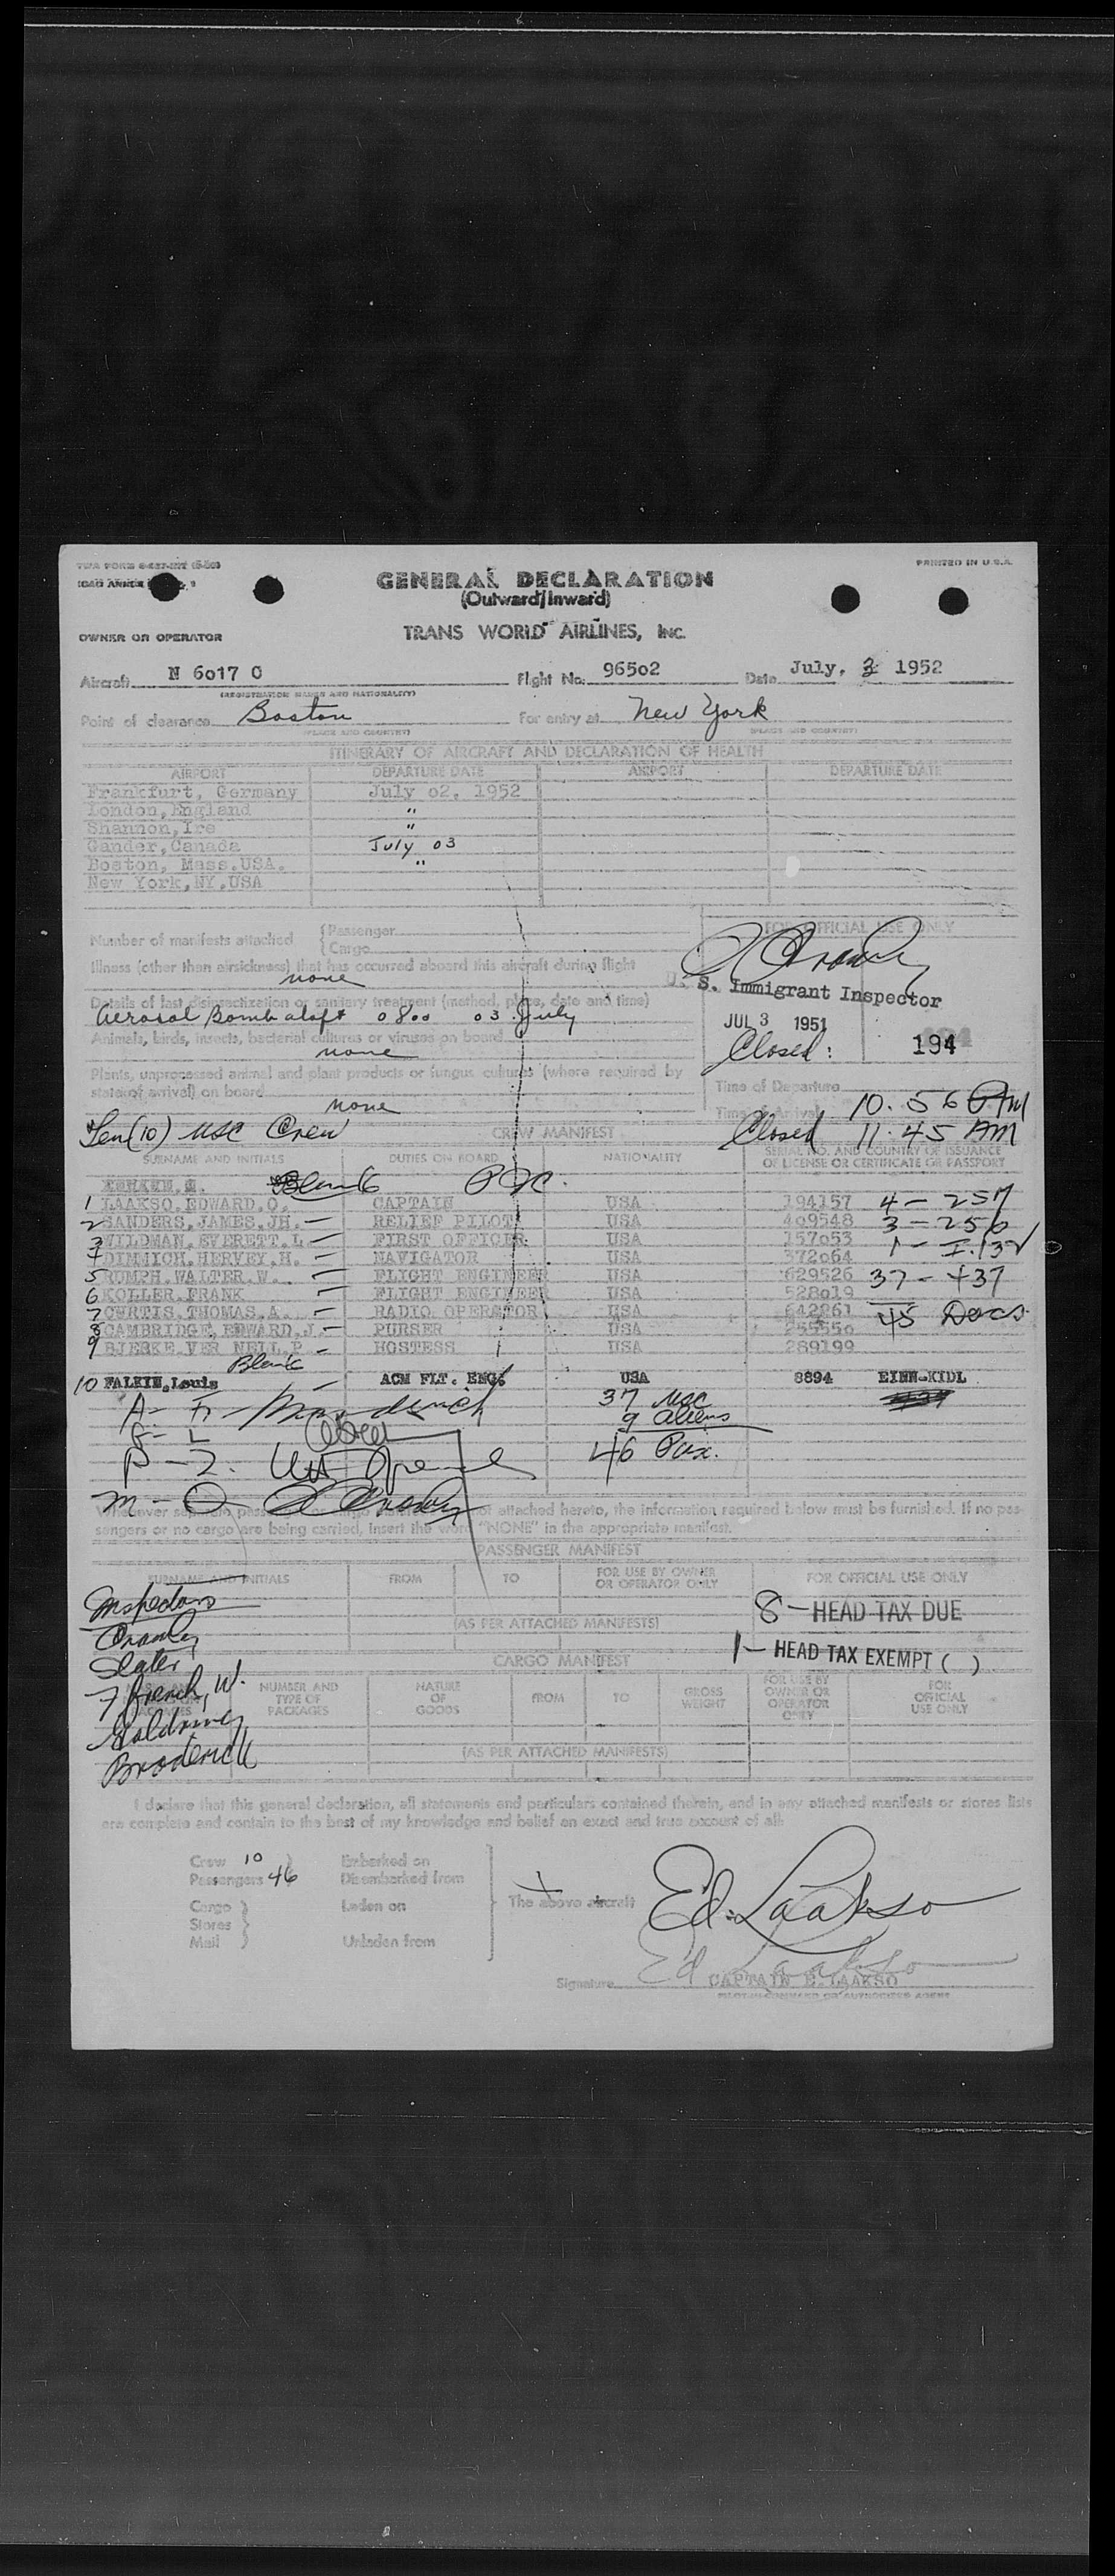 TWA FORM
PRINTED IN U.S.A.
ICAO ANNEX 9
GENERAL DECLARATION
(Outward/Inward)
OWNER OR OPERATOR
TRANS WORLD AIRLINES, INC.
Aircraft N 6017 C Flight No. 96502 Date July, 3 1952
(REGISTRATION MARKS AND NATIONALITY)
Point of clearance Boston For entry at New York
(PLACE AND COUNTRY) (PLACE AND COUNTRY)
ITINERARY OF AIRCRAFT AND DECLARATION OF HEALTH
AIRPORT DEPARTURE DATE AIRPORT DEPARTURE DATE
Frankfurt, Germany July 02, 1952
London, England "
Shannon, Ire "
Gander, Canada July 03
Boston, Mass.USA. "
New York, NY, USA
Number of manifests attached { Passenger
Cargo
FOR OFFICIAL USE ONLY
Illness (other than airsickness) that has occurred aboard this aircraft during flight
none
U. S. Immigrant Inspector
Details of last disinsectization or sanitary treatment (method, place, date and time)
Aerosol Bomb aloft 0800 03 July
JUL 3 1951
194
Closed:
Animals, birds, insects, bacterial cultures or viruses on board
none
Plants, unprocessed animal and plant products or fungus cultures (where required by
state of arrival) on board
none
Time of Departure
Time of Arrival 10.56 AM
Ten (10) USC Crew
CREW MANIFEST
Closed 11.45 AM
SURNAME AND INITIALS DUTIES ON BOARD NATIONALITY SERIAL NO. AND COUNTRY OF ISSUANCE
OF LICENSE OR CERTIFICATE OR PASSPORT
Blank
1 LAAKSO, EDWARD, O. CAPTAIN USA 194157 4 - 257
2 SANDERS, JAMES, JH. — RELIEF PILOT USA 409548 3 - 256
3 WILDMAN, EVERETT, L. — FIRST OFFICER USA 157053 1 - I.132
4 DIMMICH, HERVEY, H. — NAVIGATOR USA 372064
5 RUMPH, WALTER, W. — FLIGHT ENGINEER USA 629526 37 - 437
6 KOLLER, FRANK — FLIGHT ENGINEER USA 528019
7 CURTIS, THOMAS, A. — RADIO OPERATOR USA 642861 45 Docs.
8 CAMBRIDGE, EDWARD, J. — PURSER USA 255550
9 BJERKE, VER NELL, P — HOSTESS USA 289199
Blank
10 FALKIN, Louis — ACM FLT. ENG. USA 8894 EINN-KIDL
A - F -
37 USC
9 aliens
G - L
46 Pax.
P - Z.
M - O
Whenever separate passenger or cargo manifests are not attached hereto, the information required below must be furnished. If no pas-
sengers or no cargo are being carried, insert the word "NONE" in the appropriate manifest.
PASSENGER MANIFEST
SURNAME AND INITIALS FROM TO FOR USE BY OWNER
OR OPERATOR ONLY FOR OFFICIAL USE ONLY
Inspectors
8 — HEAD TAX DUE
(AS PER ATTACHED MANIFESTS)
Slater
1 — HEAD TAX EXEMPT ( )
CARGO MANIFEST
French, W.
NUMBER AND
TYPE OF
PACKAGES NATURE
OF
GOODS FROM TO GROSS
WEIGHT FOR USE BY
OWNER OR
OPERATOR
ONLY FOR
OFFICIAL
USE ONLY
Broderick
(AS PER ATTACHED MANIFESTS)
I declare that this general declaration, all statements and particulars contained therein, and in any attached manifests or stores lists
are complete and contain to the best of my knowledge and belief an exact and true account of all:
Crew 10 Embarked on
Passengers 46 Disembarked from
Cargo Laden on
Stores
Mail Unladen from
The above aircraft
Ed. Laakso
Ed Laakso
Signature CAPTAIN E. LAAKSO
PILOT-IN-COMMAND OR AUTHORIZED AGENT